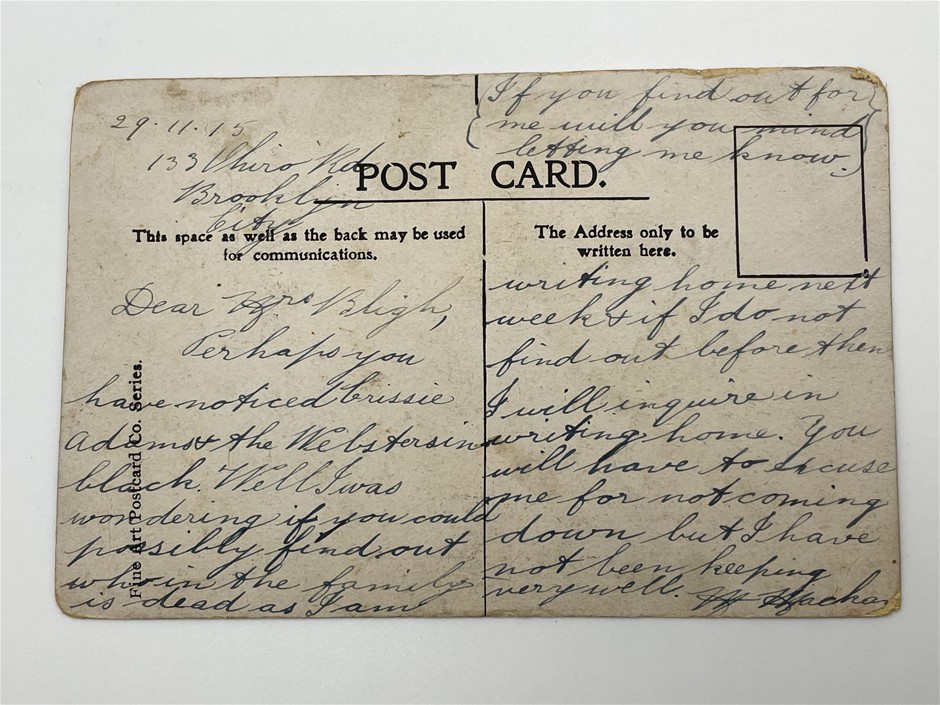 29.11.15
133 Ohiro Rd
Brooklyn
City
POST CARD.
This space as well as the back may be used
for communications.
The Address only to be
written here.
Fine Art Postcard Co. Series.
Dear Mrs Bligh,
Perhaps you
have noticed Crissie
Adams & the Websters in
black. Well I was
wondering if you could
possibly find out
who in the family
is dead as I am
writing home next
week & if I do not
find out before then
I will inquire in
writing home. You
will have to excuse
me for not coming
down but I have
not been keeping
very well.
{If you find out for
me will you mind
letting me know.}